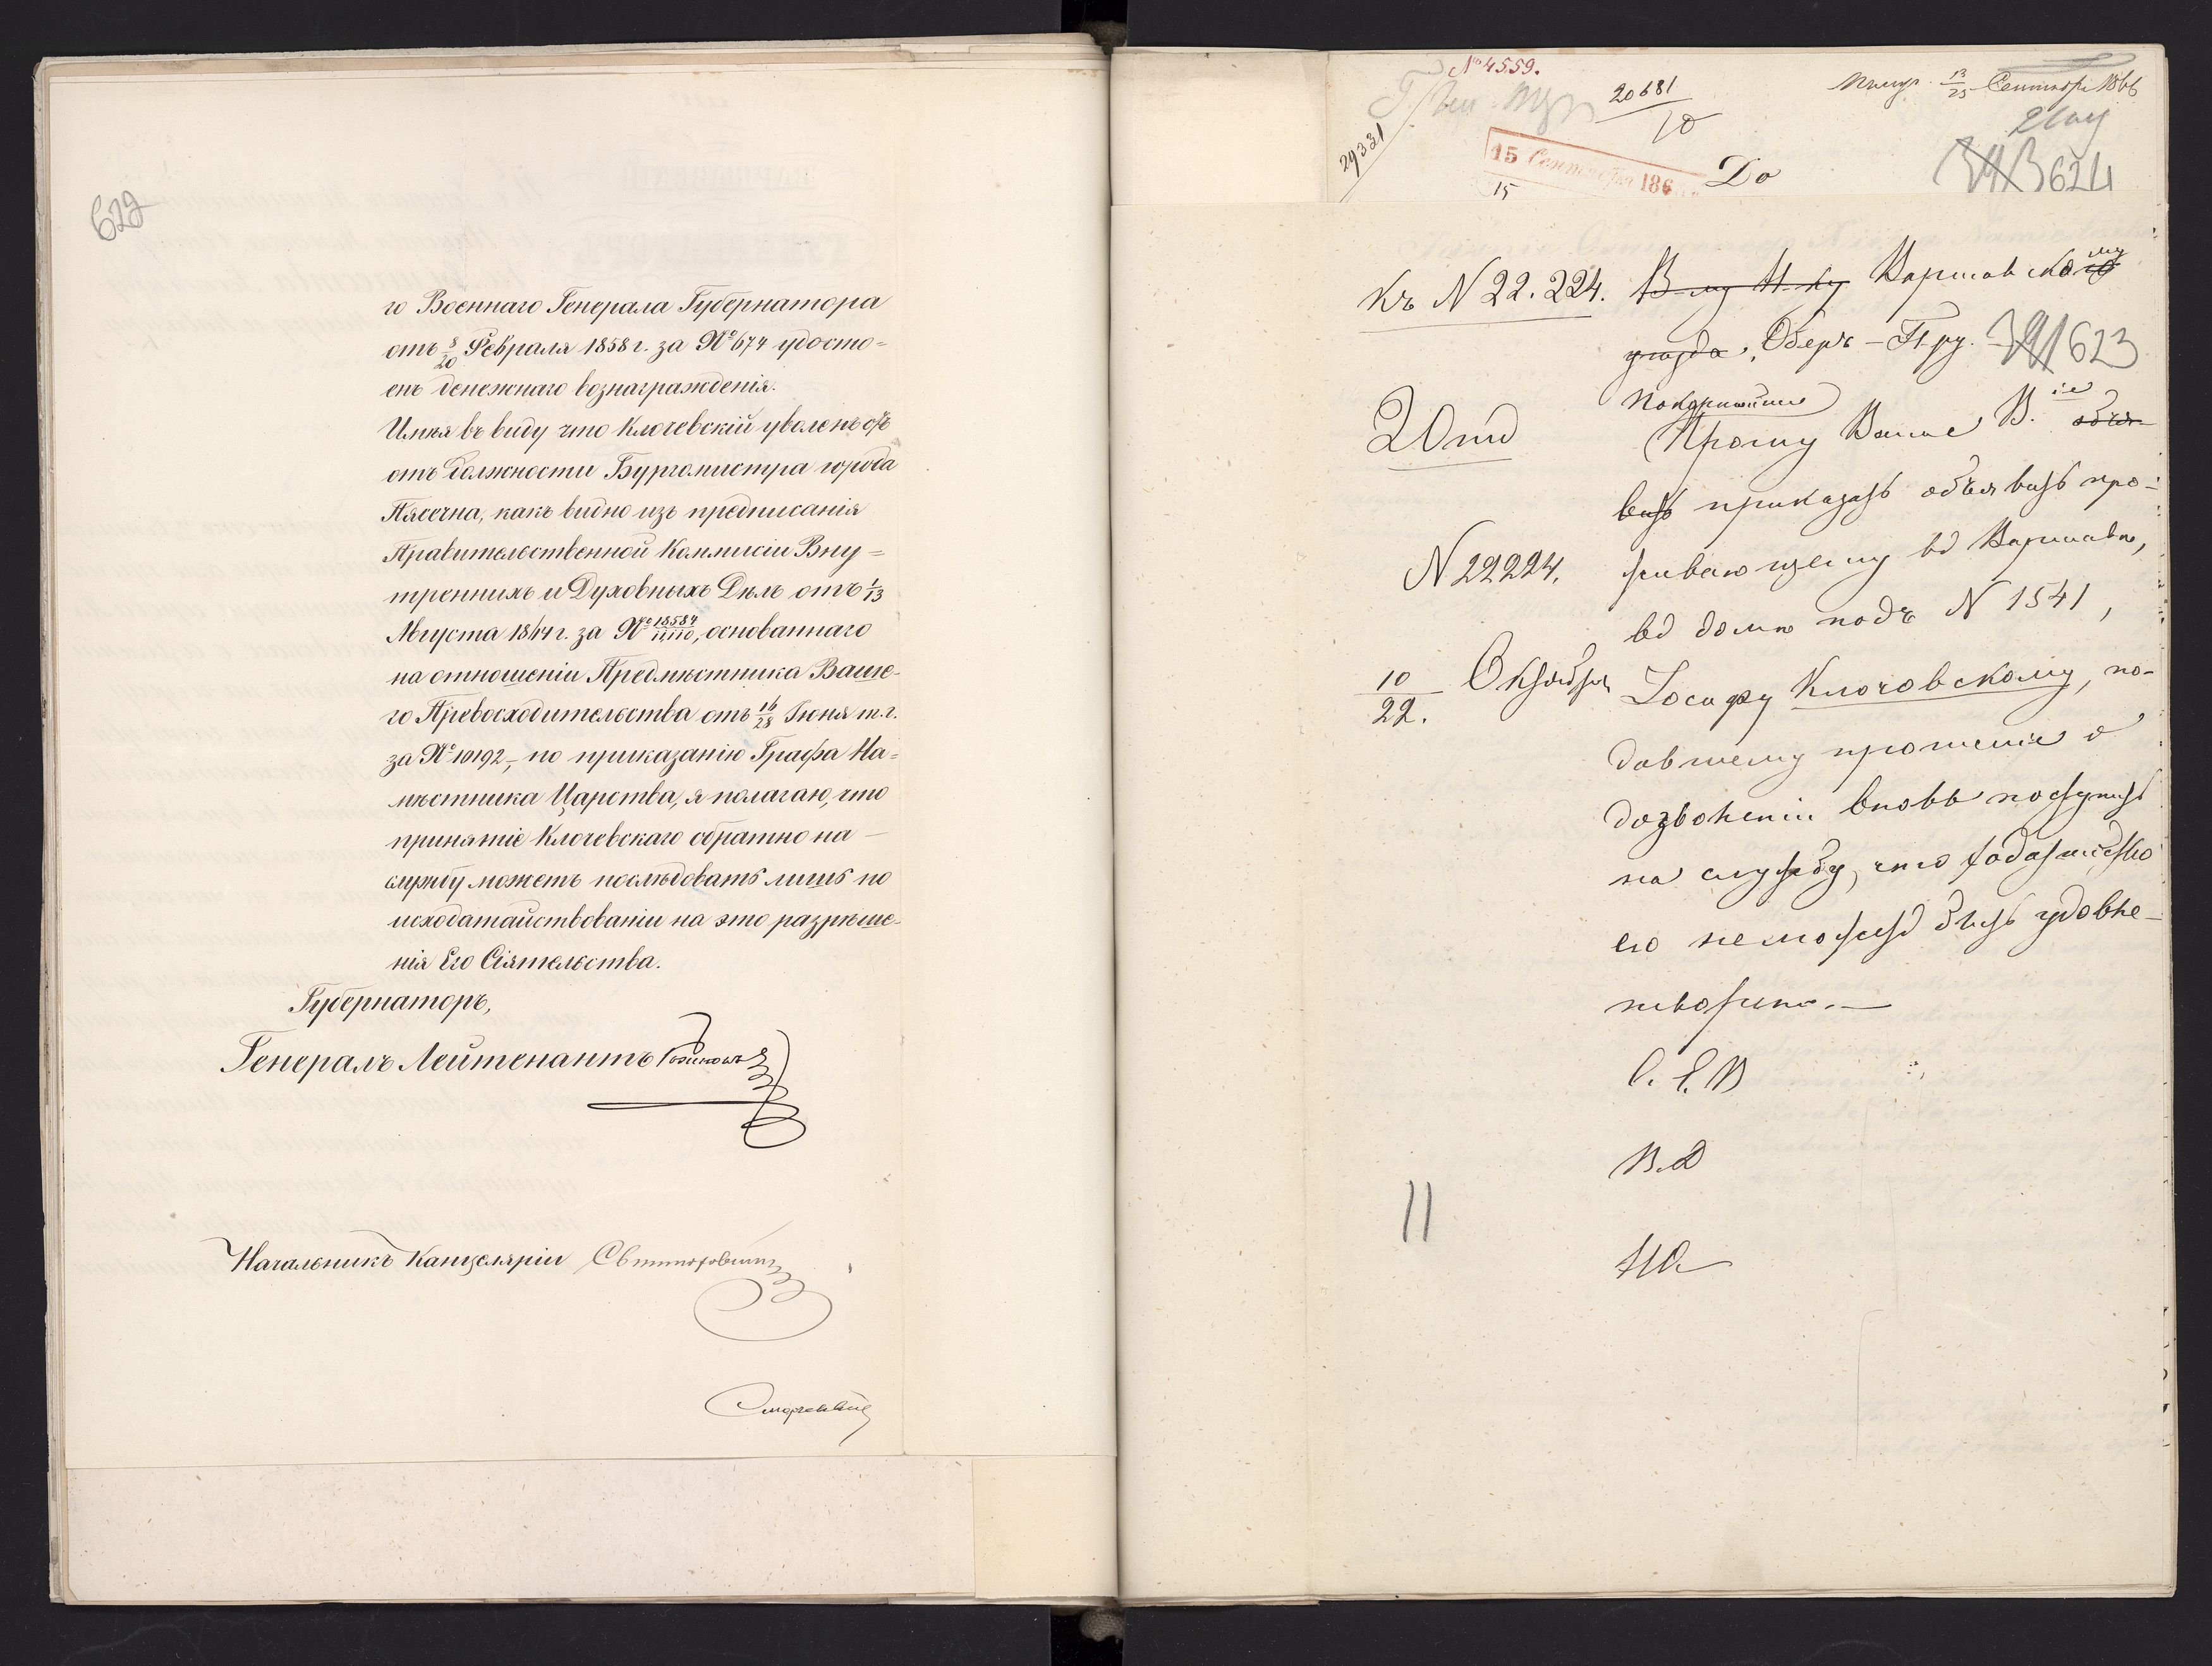 622
го Военнаго Генерала Губернатора
отъ 8/20 Февраля 1858 г. за № 674 удосто=
енъ денежнаго вознагражденія.
Имѣя въ виду что Клочевскій уволенъ
отъ должности Бургомистра города
Пясечна, какъ видно изъ предписанія
Правительственной Коммисіи Вну=
треннихъ и Духовныхъ Дѣлъ отъ 1/13
Августа 1844 г. за № 18584/11110, основаннаго
на отношеніи Предмѣстника Ваше-
го Превосходительства отъ 16/28 Іюня т.г.
за № 10192, по приказанію Графа На=
мѣстника Царства, я полагаю, что
принятіе Клочевскаго обратно на
службу можетъ послѣдовать лишь по
исходатайствованіи на это разрѣше-
нія Его Сіятельства.
Губернаторъ,
Генералъ Лейтенантъ
Начальникъ Канцеляріи
№ 4559.
20681/10
13/25 Сентября 1866
29331
15 Сентября 186
15
До
624
Къ N 22.224. В-му Н-ку Варшавскому
уѣзда, Оберъ-П
623
покорнѣйше
Прошу Ваше В. ie объя-
вить приказать объявить про-
N 22224. живающему въ Варшавѣ,
въ домѣ подъ N 1541,
10/22. Октября Іосифу Клочовскому, по-
давшему прошеніе о
дозволеніи вновь поступить
на службу, что ходатайство
его не можетъ быть удовле-
творено.—
С. Е. В
В. Д
11